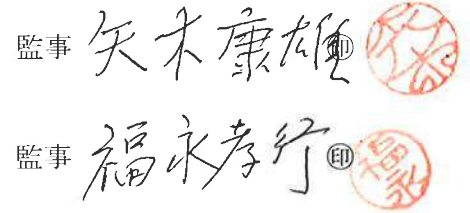 監事 矢木康雄 ㊞
監事 福永孝行 ㊞ 福永